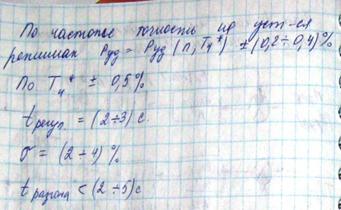 По частоте точность на уст-ся
режимах Pуд = Pуд (n, T₄*) ± (0,2÷0,4)%
По T₄* ± 0,5%
t регул. = (2÷3) с
σ = (2÷4) %
t разгона < (2÷5) с